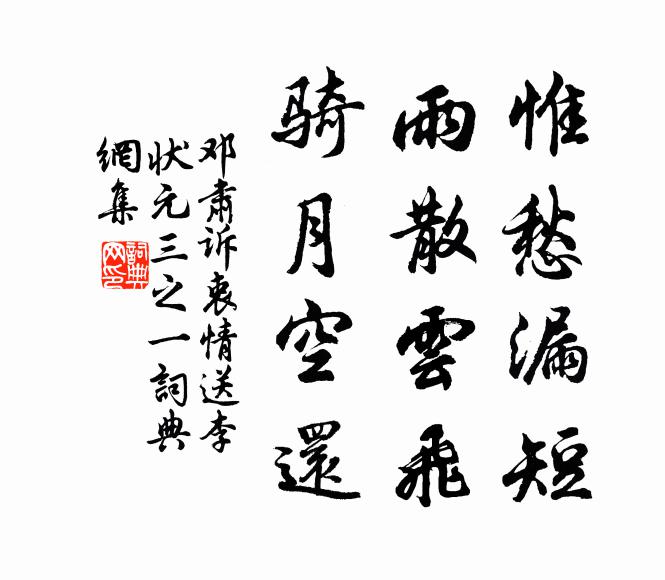 惟愁漏短
雨散雲飛
騎月空還
邓肅诉衷情送李
状元三之一詞典
網集
詞典
网印